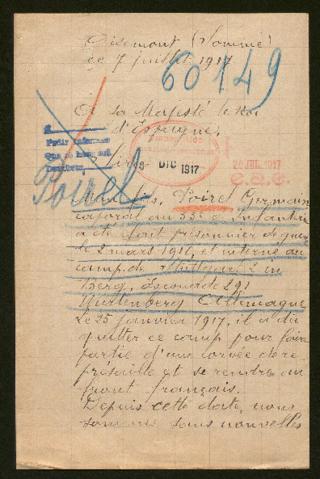 Oisemont (Somme)
ce 7 juillet 1917
60149
A sa Majesté le Roi
d'Espagne,
Pedir informes
Sire
8- DIC 1917
20 JUL. 1917
Poirel
Mon fils, Poirel Germain
caporal au 33e d'Infanterie
a été fait prisonnier de guerre
le 2 mars 1916, et interné au
camp de Stuttgard 2 en
Berg,
Wurtenberg Allemagne
Le 25 janvier 1917, il a dû
quitter ce camp pour faire
partie d'une corvée de re
présaille et se rendre au
front français.
Depuis cette date, nous
sommes sans nouvelles